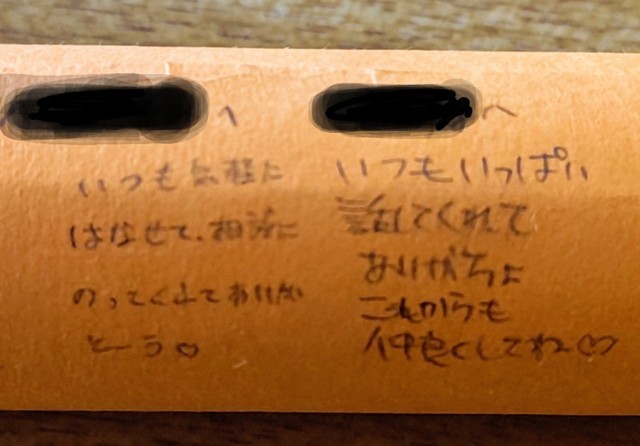 へ
いつも気軽に
はなせて、相談に
のってくれてありが
とーう♡
へ
いつもいっぱい
話してくれて
ありがちょ
これからも
仲良くしてね〜♡